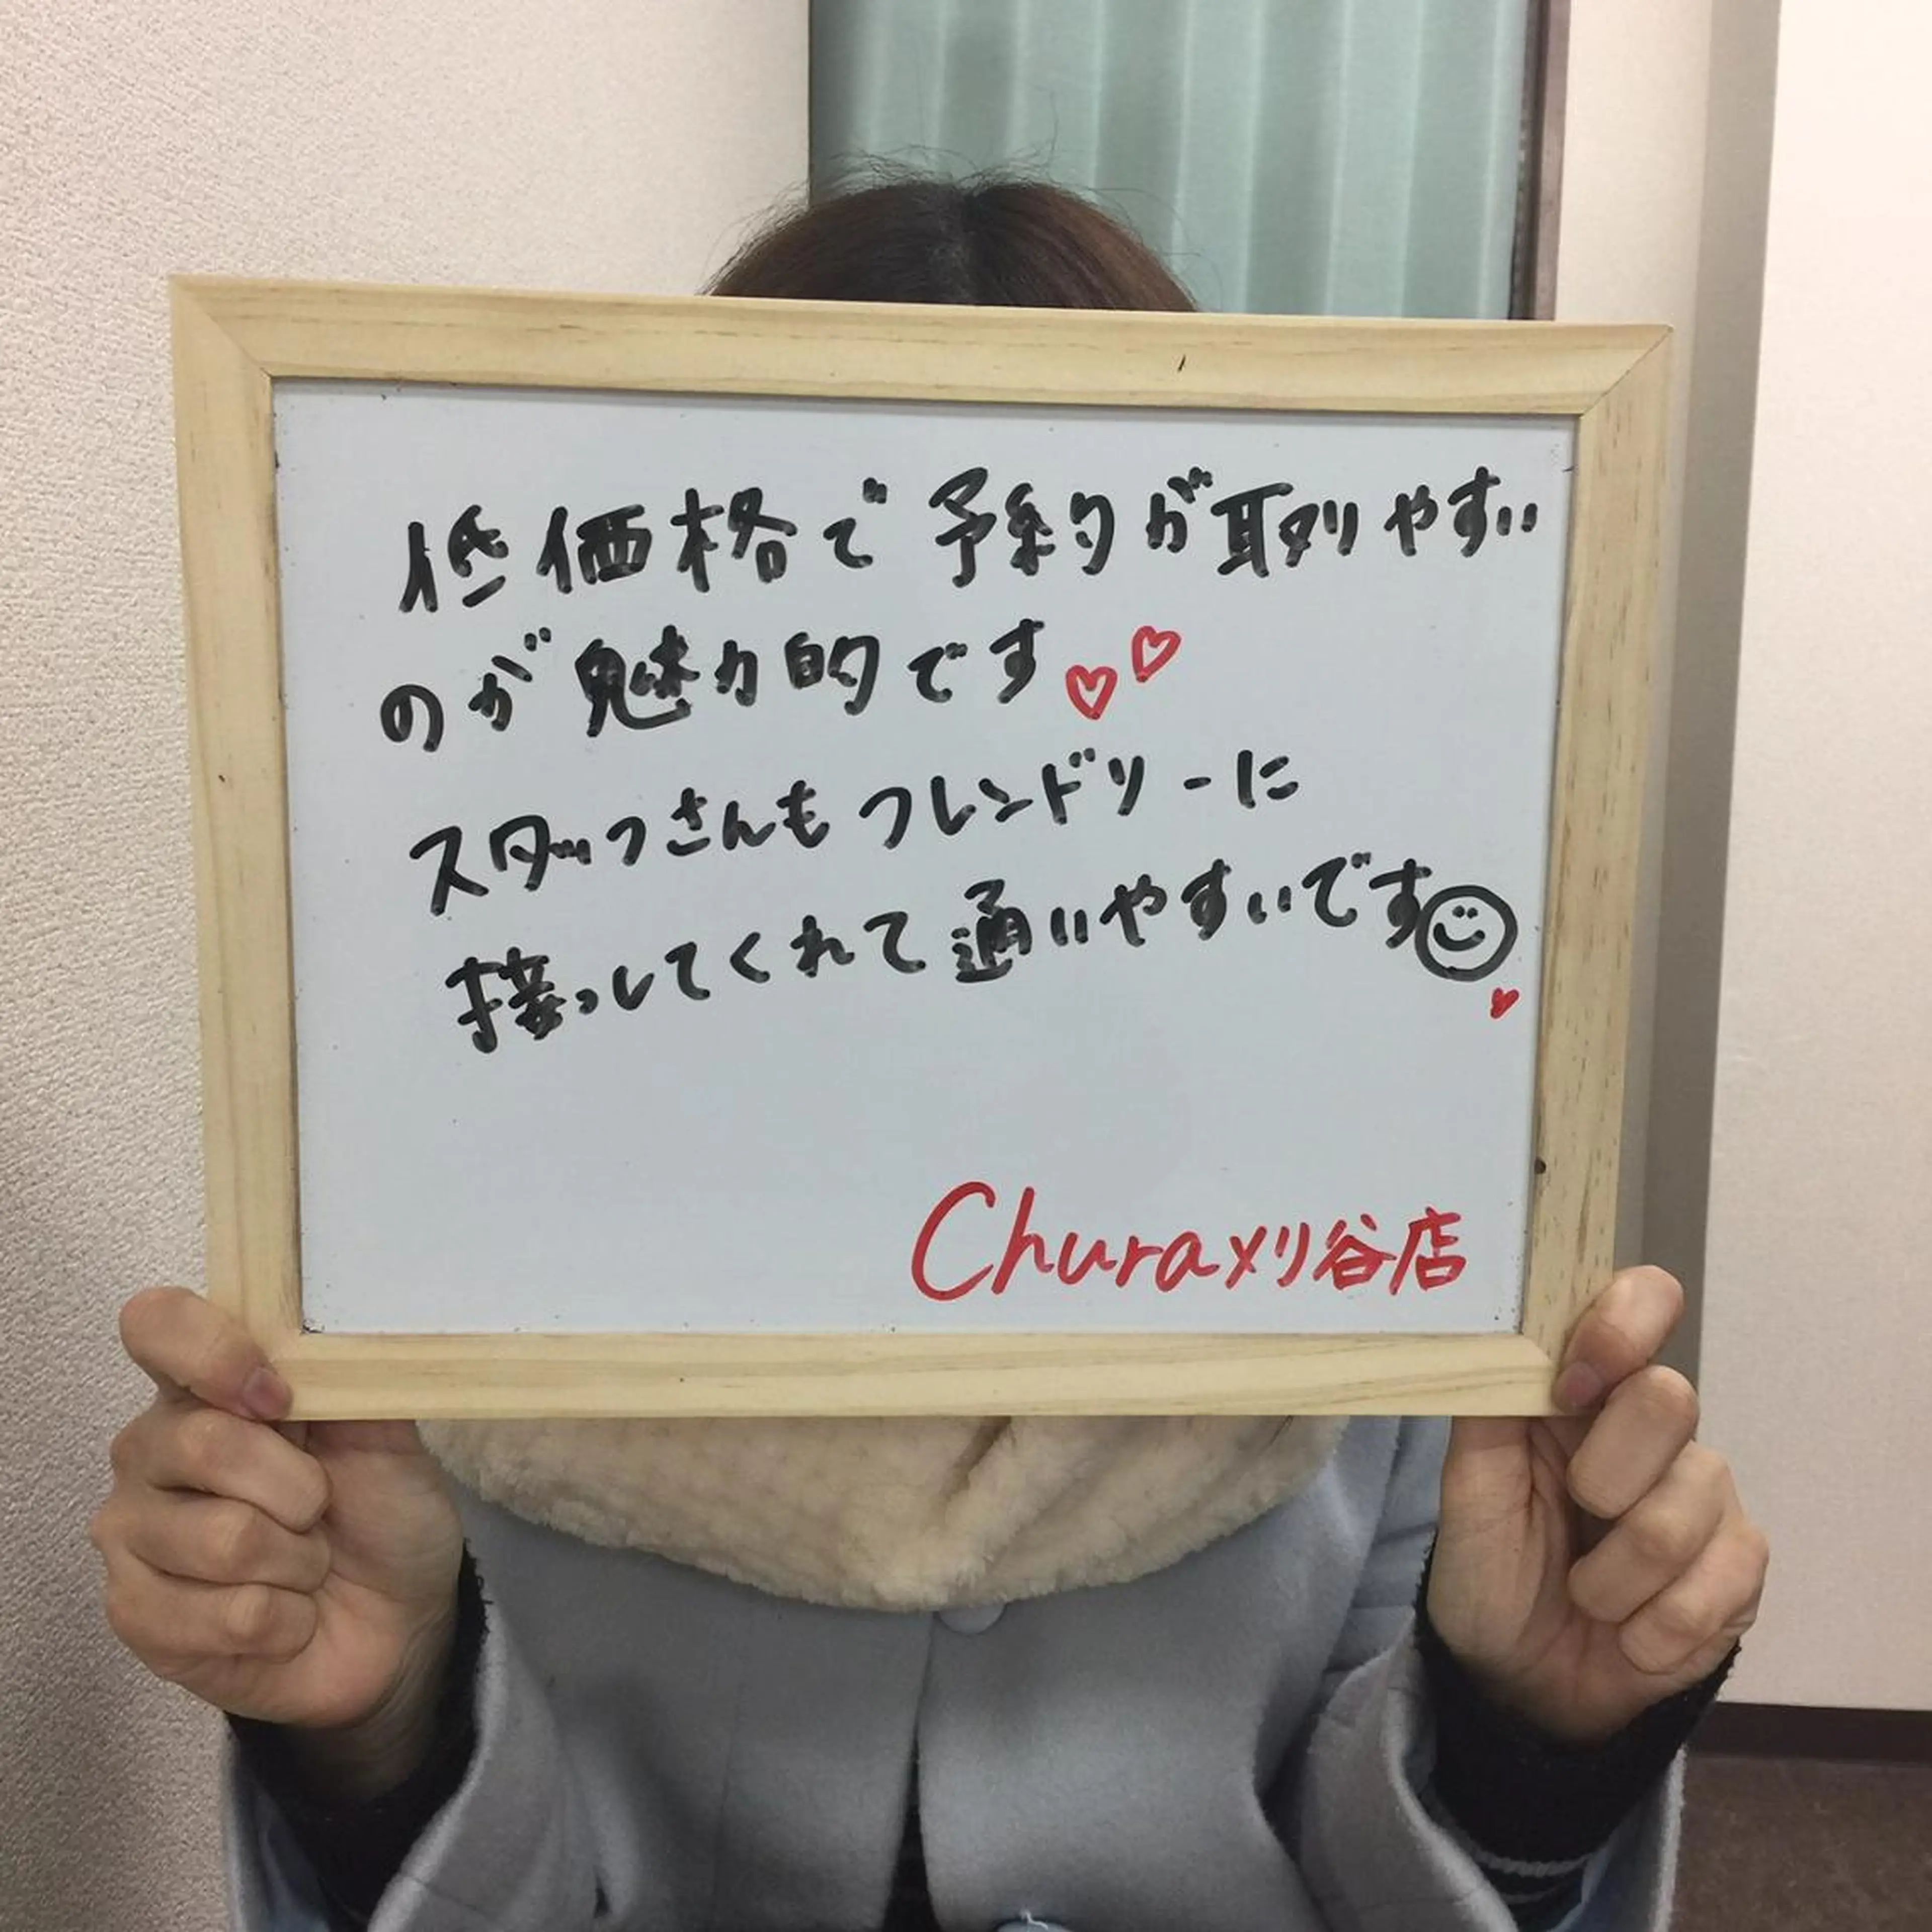 低価格で予約が取りやすい
のが魅力的です♡♡
スタッフさんもフレンドリーに
接っしてくれて通いやすいです☺
♥
Chura刈谷店